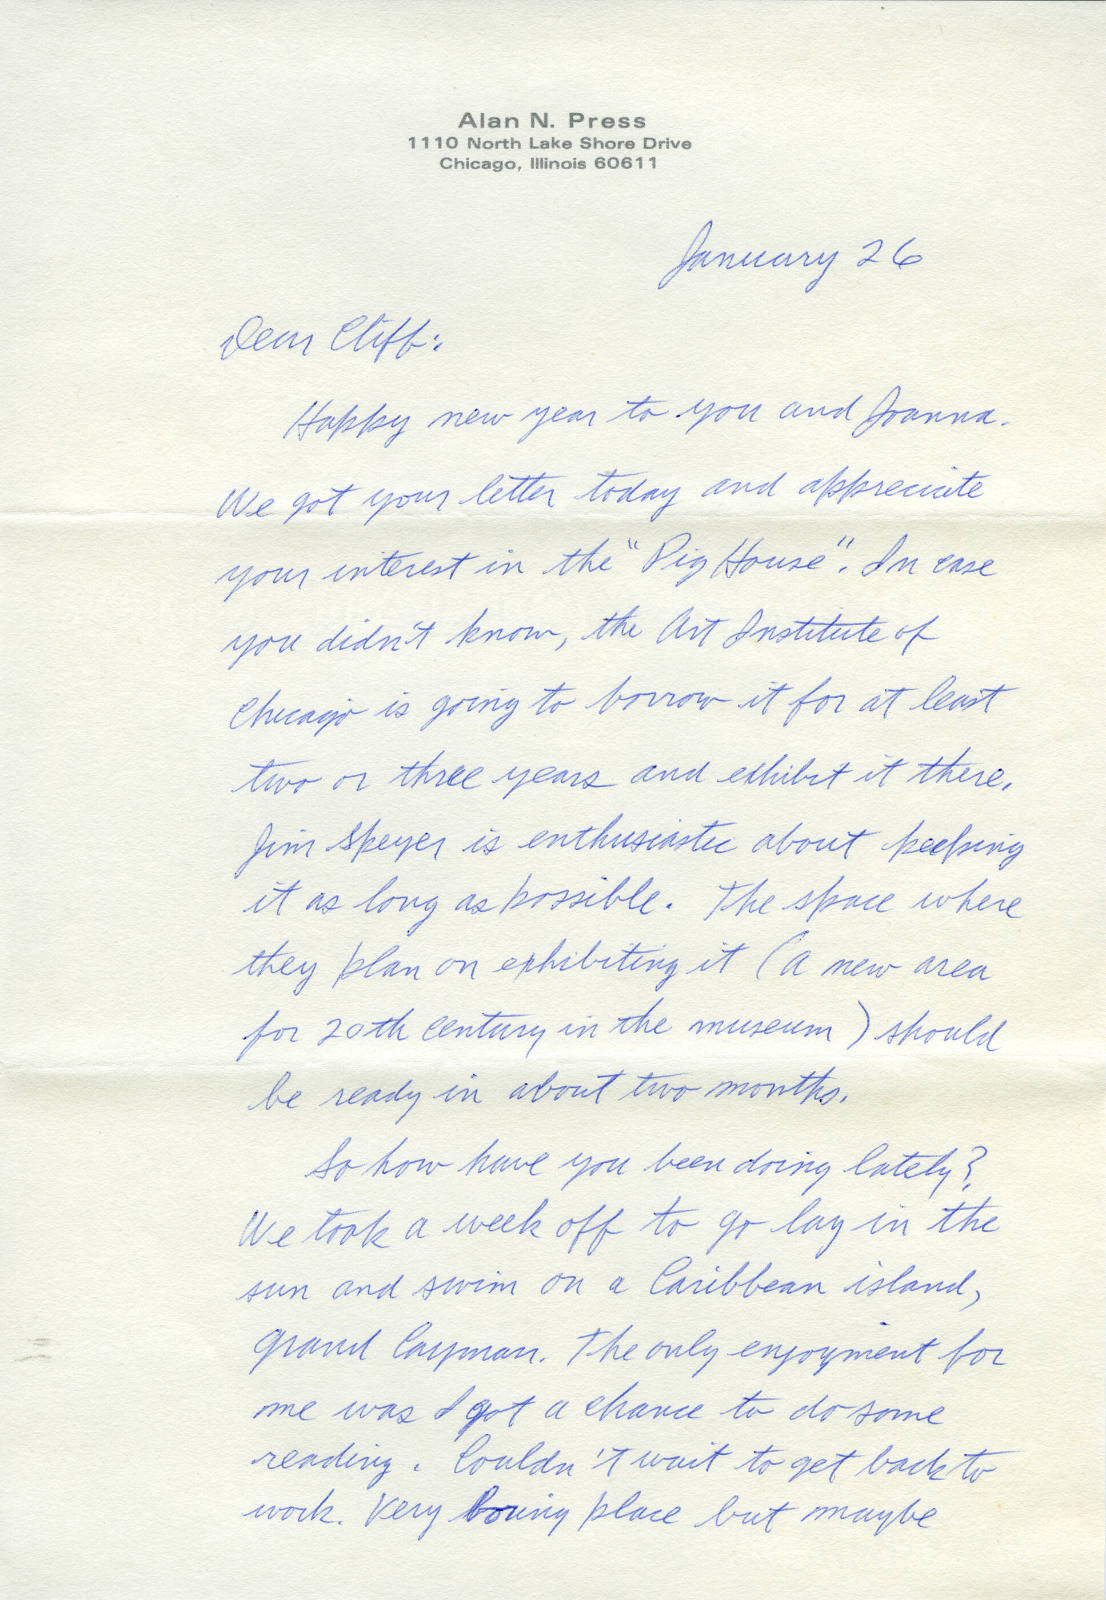 Alan N. Press
1110 North Lake Shore Drive
Chicago, Illinois 60611
January 26
Dear Cliff:
Happy new year to you and Joanna.
We got your letter today and appreciate
your interest in the "Pig House". In case
you didn't know, the Art Institute of
Chicago is going to borrow it for at least
two or three years and exhibit it there.
Jim Speyer is enthusiastic about keeping
it as long as possible. The space where
they plan on exhibiting it (a new area
for 20th century in the museum) should
be ready in about two months.
So how have you been doing lately?
We took a week off to go lay in the
sun and swim on a Caribbean island,
Grand Cayman. The only enjoyment for
me was I got a chance to do some
reading. Couldn't wait to get back to
work. Very boring place but maybe